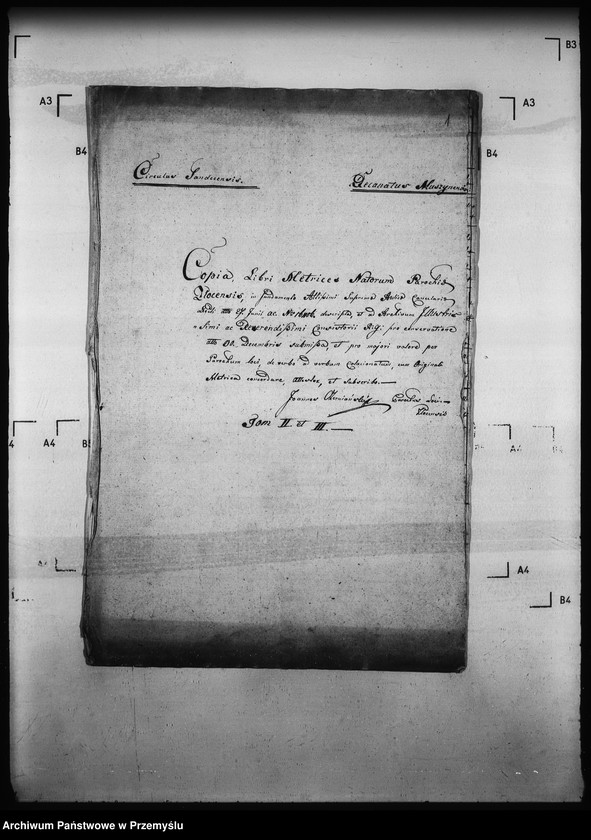 B3
A3
A3
B4
B4
1
Circulus Sandecensis.
Decanatus Muszynensis
Copia Libri Metrices Natorum Parochiæ
in fundamento Altissimi Supremæ Aulæ Cancelariæ
Junii ac. descripta, et ad Archivum Illustris
simi ac Reverendissimi Consistorii pro conservatione
Decembris submissa, et pro majori valore per
Parochum loci, de verbo ad verbum colacionatus, cum Originali
Metrica concordare, attestor, et subscribo.—
Joannes
Tom II et III.—
4
A4
B
A4
A4
B4
Archiwum Państwowe w Przemyślu